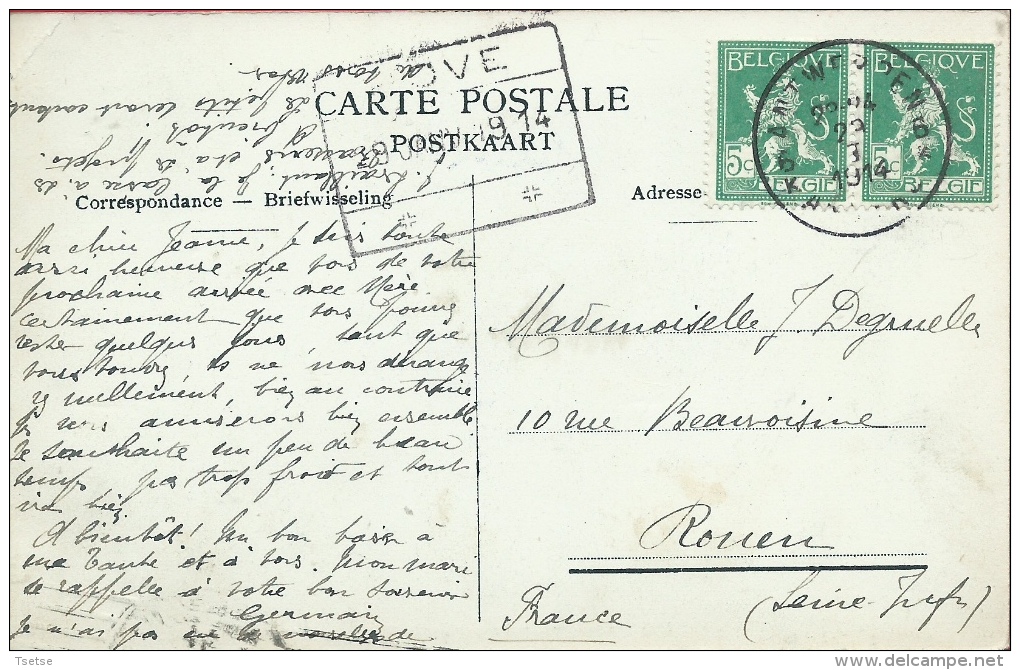 CARTE POSTALE
POSTKAART
Correspondance — Briefwisseling
Adresse
BELGIQVE
BELGIQVE
5c
BELGIE
5c
BELGIE
ANTWERPEN 6
1914
OVE
29 JANV 1914
Ma chère Jeanne, je suis toute
aussi heureuse que vous de votre
prochaine arrivée avec Mère.
certainement que vous pourrez
rester quelques jours, tant que
vous voudrez, ne nous dérange
nullement, bien au contraire
nous amuserons bien ensemble
je souhaite un peu de beau
temps pas trop froid et tout
ira bien
A bientôt! Un bon baiser à
ma Tante et à vous. Mon mari
se rappelle à votre bon souvenir
Germain
Je n'ai pas
Mademoiselle J. Degruelle
10 rue Beauvoisine
Rouen
France
(Seine-Infre)
Tsetse
www.delcampe.net